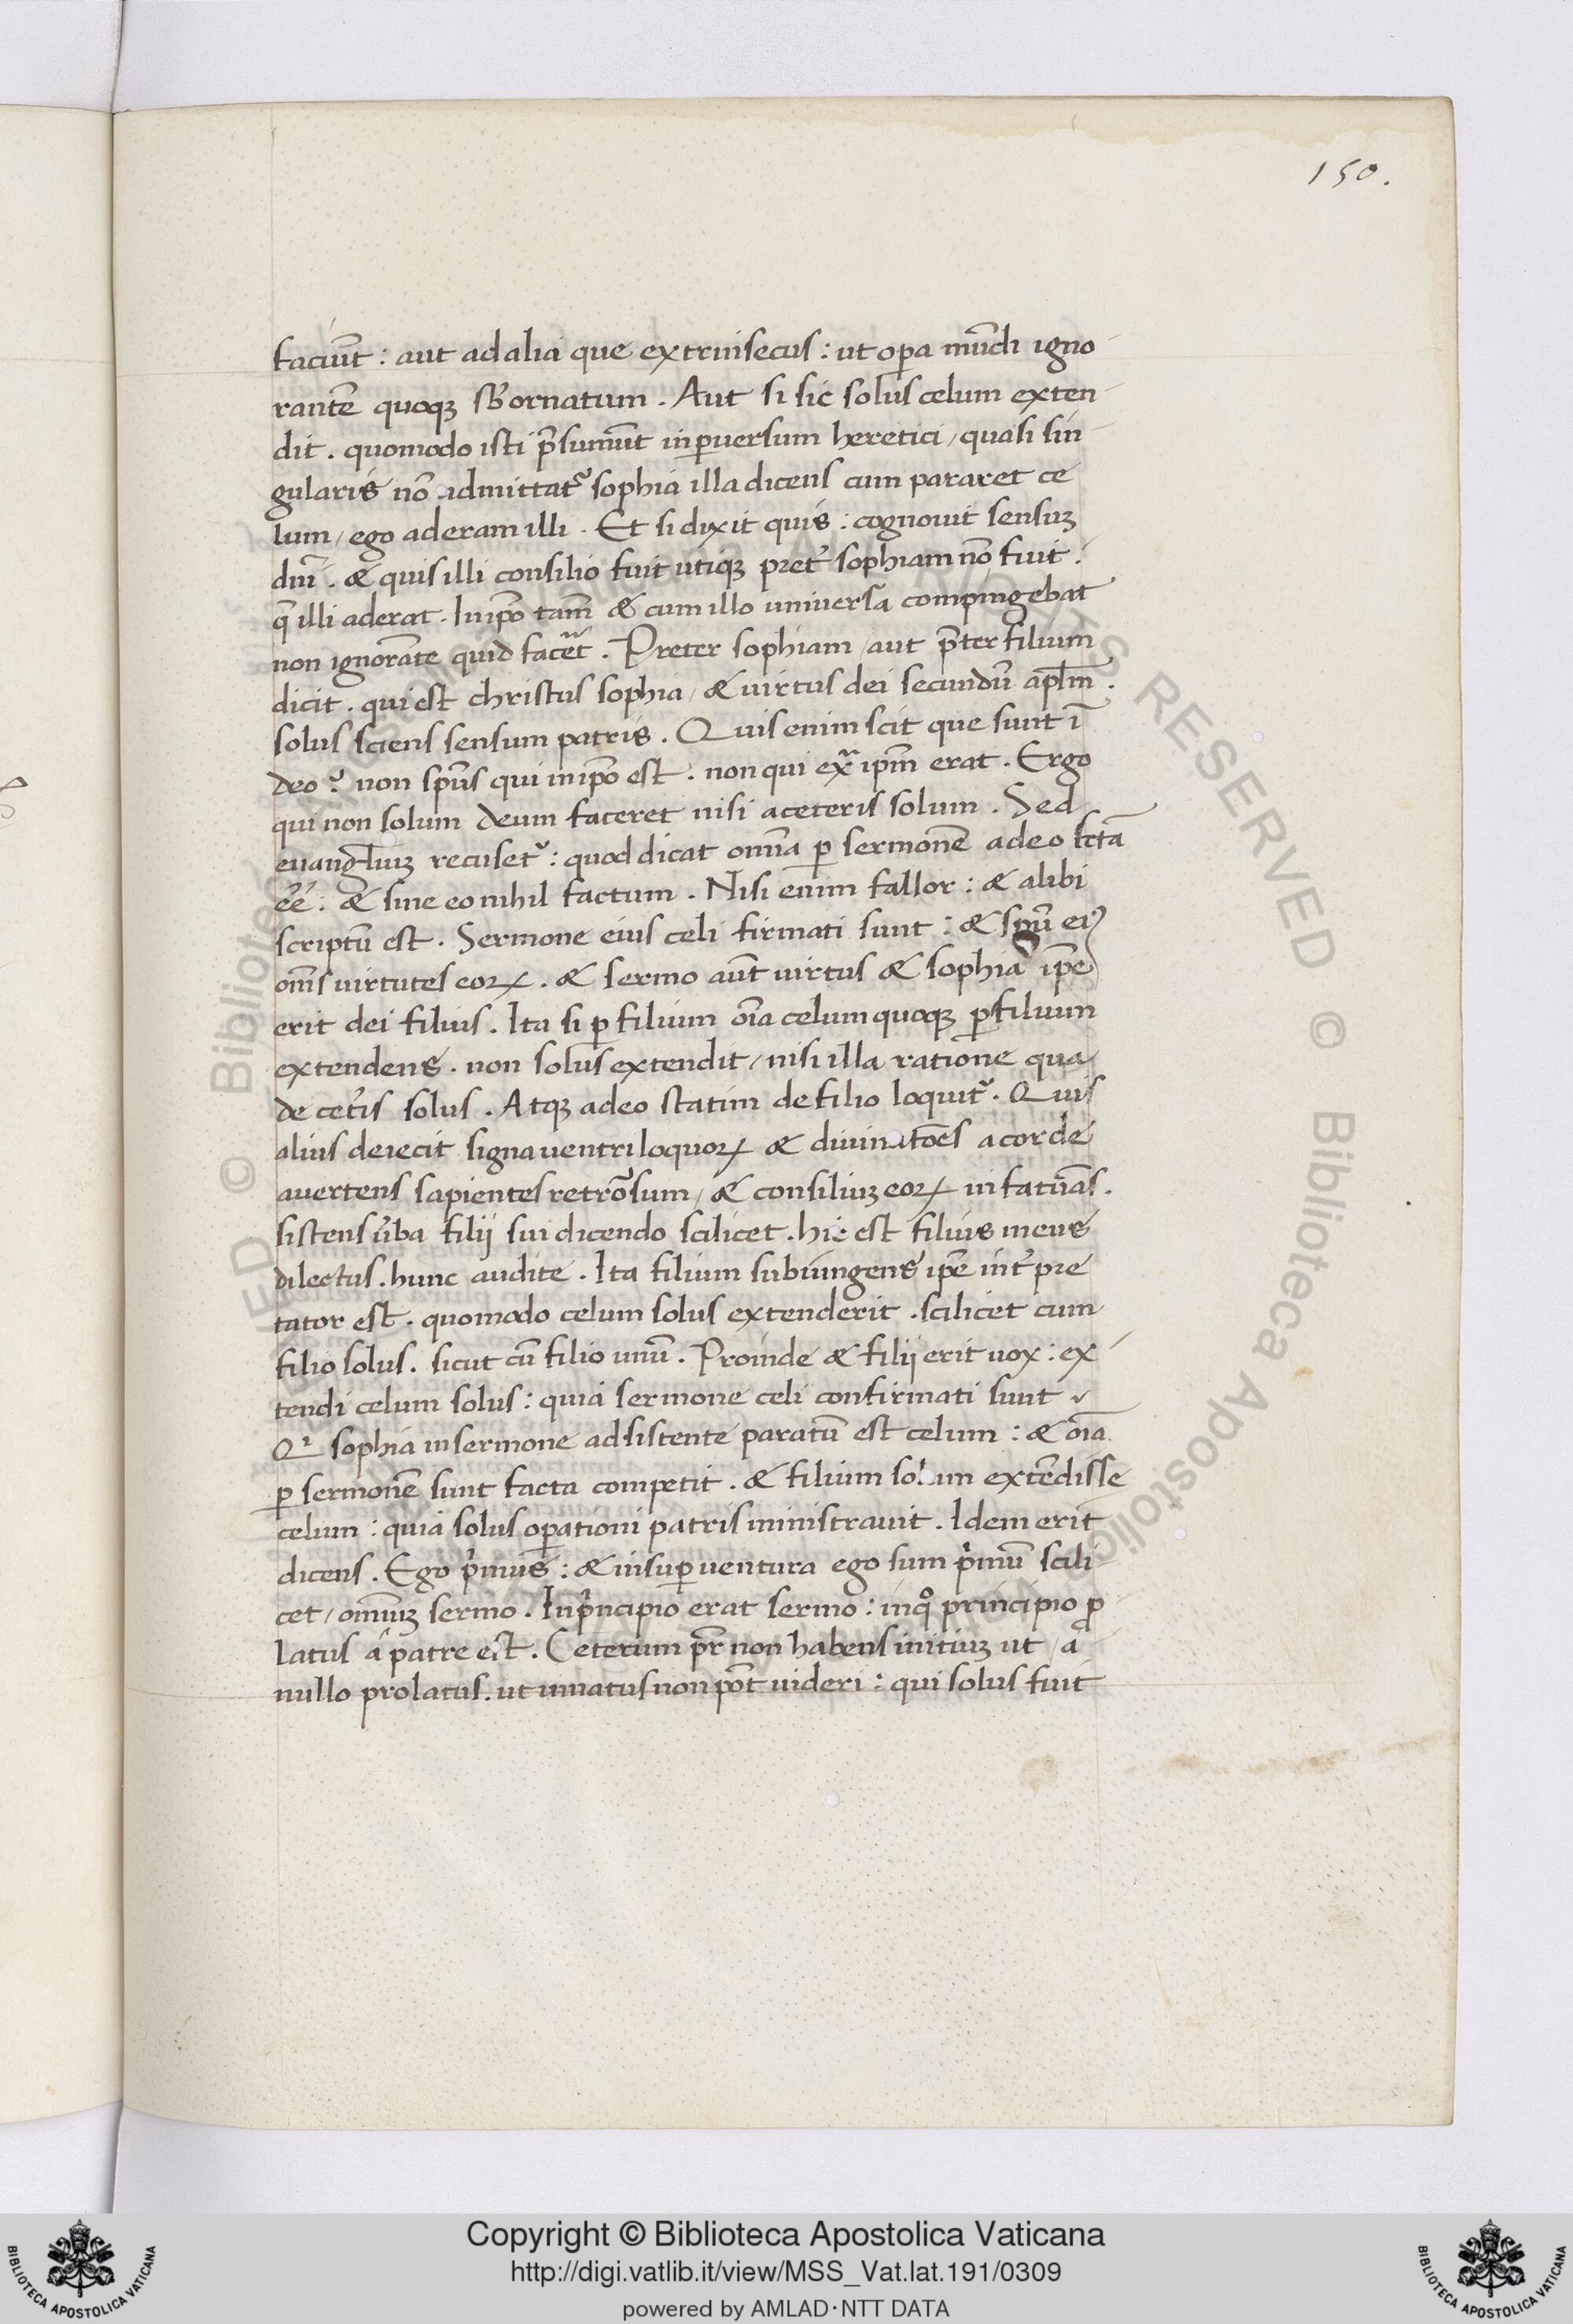 150.
faciūt : aut ad alia que extrinsecus : ut opa mūdi igno
rantē quoqꝫ sb' ornatum . Aut si sic solus celum exten
dit . quomodo isti p̄sumūt in puersum heretici / quasi sin
gularis nō admittat᷑ sophia illa dicens cum pararet ce
lum / ego aderam illi . Et si dixit quis : cognouit sensuꝫ
dn̄i . & quis illi consilio fuit utiqꝫ pret' sophiam nō fuit :
q̄ illi aderat . In ip̄o tam̄ & cum illo universa compingebat
non ignorāte quid facēt . Preter sophiam / aut p̄ter filium
dicit . qui est christus sophia / & uirtus dei secundū apl̄m .
solus sciens sensum patris . Quis enim scit que sunt ī
deo ? non sp̄us qui in ip̄o est . non qui exᵃ ip̄m erat . Ergo
qui non solum deum faceret nisi a ceteris solum . Sed
euangl̄iuꝫ recuset᷑ : quod dicat omnīa ꝑ sermonē a deo fctā
eē : & sine eo nihil factum . Nisi enim fallor : & alibi
scriptū est . Sermone eius celi firmati sunt : & spū eiꝰ
om̄s uirtutes eoꝝ . & sermo aūt uirtus & sophia ip̄e
erit dei filius . Ita si ꝑ filium oīa celum quoqꝫ ꝑ filium
extendens . non solus extendit / nisi illa ratione qua
de cet'is solus . Atqꝫ adeo statim de filio loquit᷑ . Quis
alius deiecit signa uentriloquoꝝ & diuinatōes a corde
auertens sapientes retrosum / & consiliuꝫ eoꝝ infatuās .
sistens u'ba filij sui dicendo scilicet . hic est filius meus
dilectus . hunc audite . Ita filium subiungens ip̄e int'pre
tator est . quomodo celum solus extenderit . scilicet cum
filio solus . sicut cū filio unū . Proinde & filij erit uox : ex
tendi celum solus : quia sermone celi confirmati sunt
Qꝛ sophia in sermone adsistente paratū est celum : & oīa
ꝑ sermonē sunt facta competit . & filium solum extēdisse
celum : quia solus oꝑationi patris ministrauit . Idem erit
dicens . Ego pⁱmus : & insuꝑ uentura ego sum pⁱmū scili
cet / omniuꝫ sermo . In pⁱncipio erat sermo : in qͦ principio ꝓ
latus a patre est . Ceterum pr̄ non habens initiuꝫ ut / a
nullo prolatus . ut innatus non pōt uideri : qui solus fuit
Copyright © Biblioteca Apostolica Vaticana
http://digi.vatlib.it/view/MSS_Vat.lat.191/0309
powered by AMLAD·NTT DATA